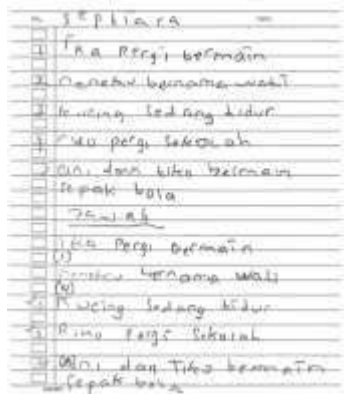 Sephiara
1 Ika Pergi bermain
2 nenekku bernama wati
3 kucing sedang tidur
4 pergi sekolah
5 ani dan tika bermain
sepak bola
Jawab
Ika Pergi bermain
(1)
nenekku bernama wati
(4)
Kucing sedang tidur
Rino Pergi Sekolah
Ani dan Tika bermain
Sepak bola